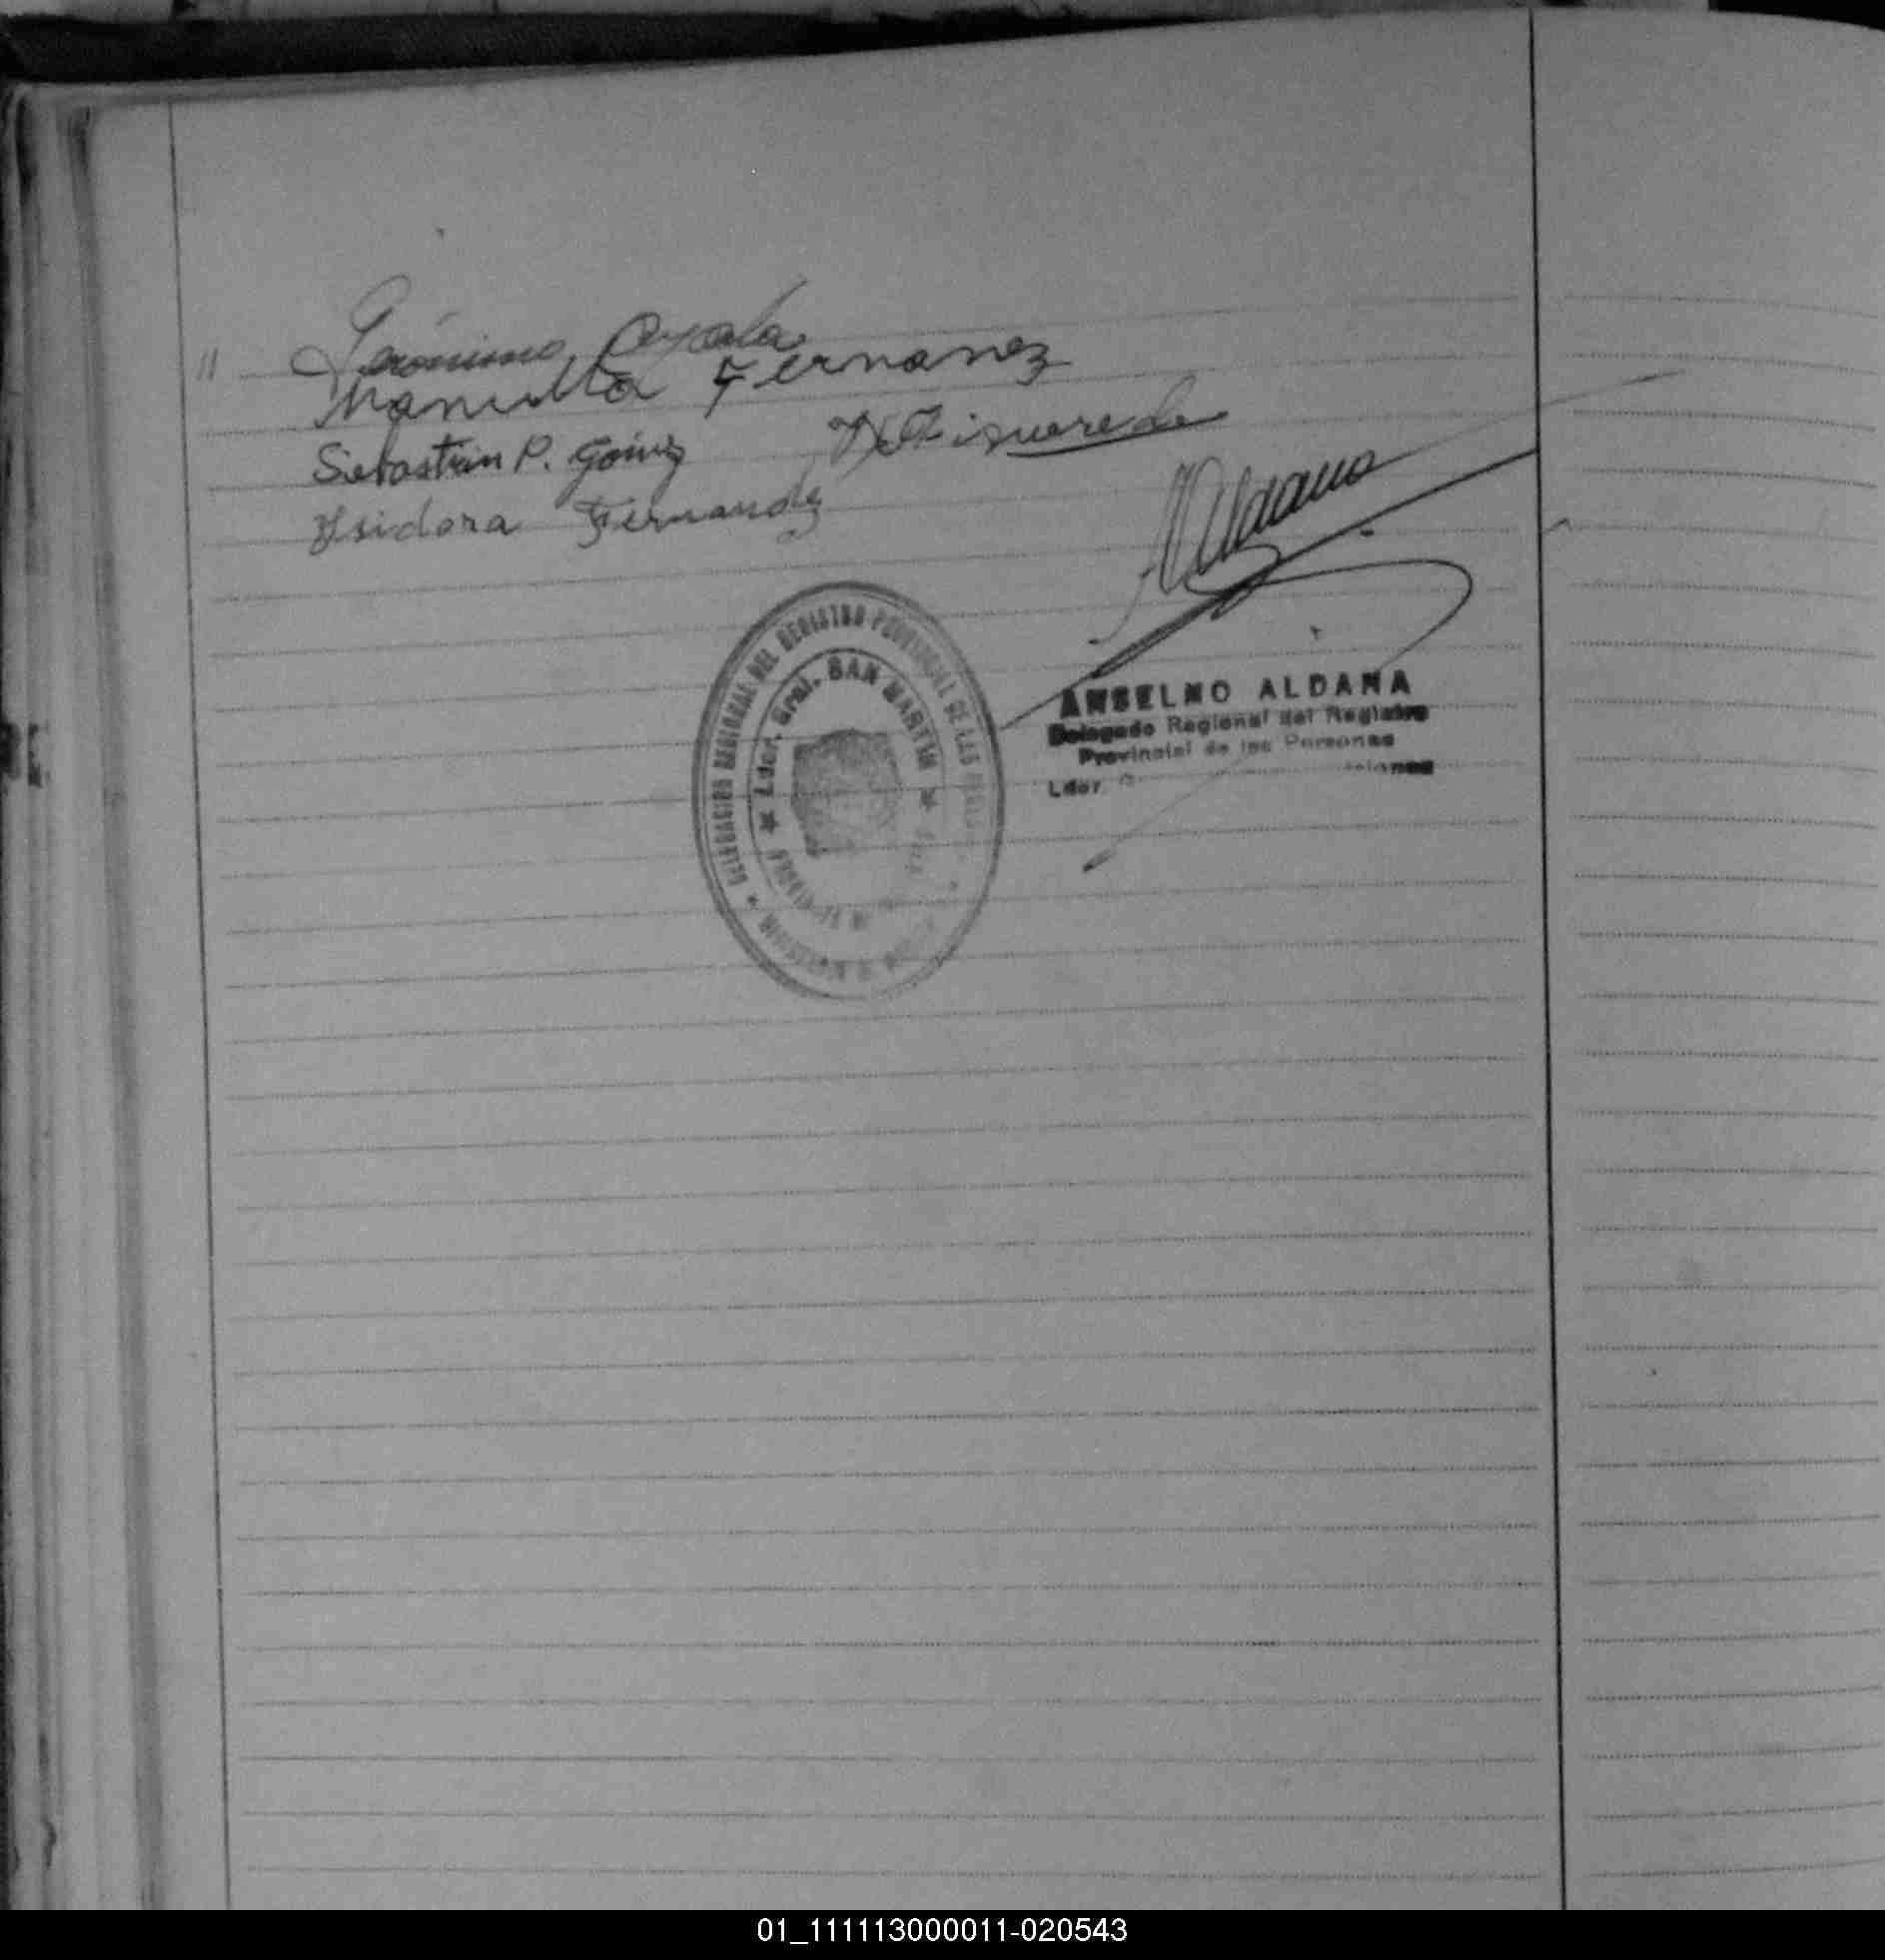 " Gerónimo Ayala
Manuella Fernanez
Sebastian P. Gómez
D. Figueredo
Ysidora Fernandez
Aldana
DELEGACION REGIONAL DEL REGISTRO PROVINCIAL DE LAS
Lder. Gral. SAN MARTIN
ANSELMO ALDANA
Delegado Regional del Registro
Provincial de las Personas
Lder.
01_111113000011-020543